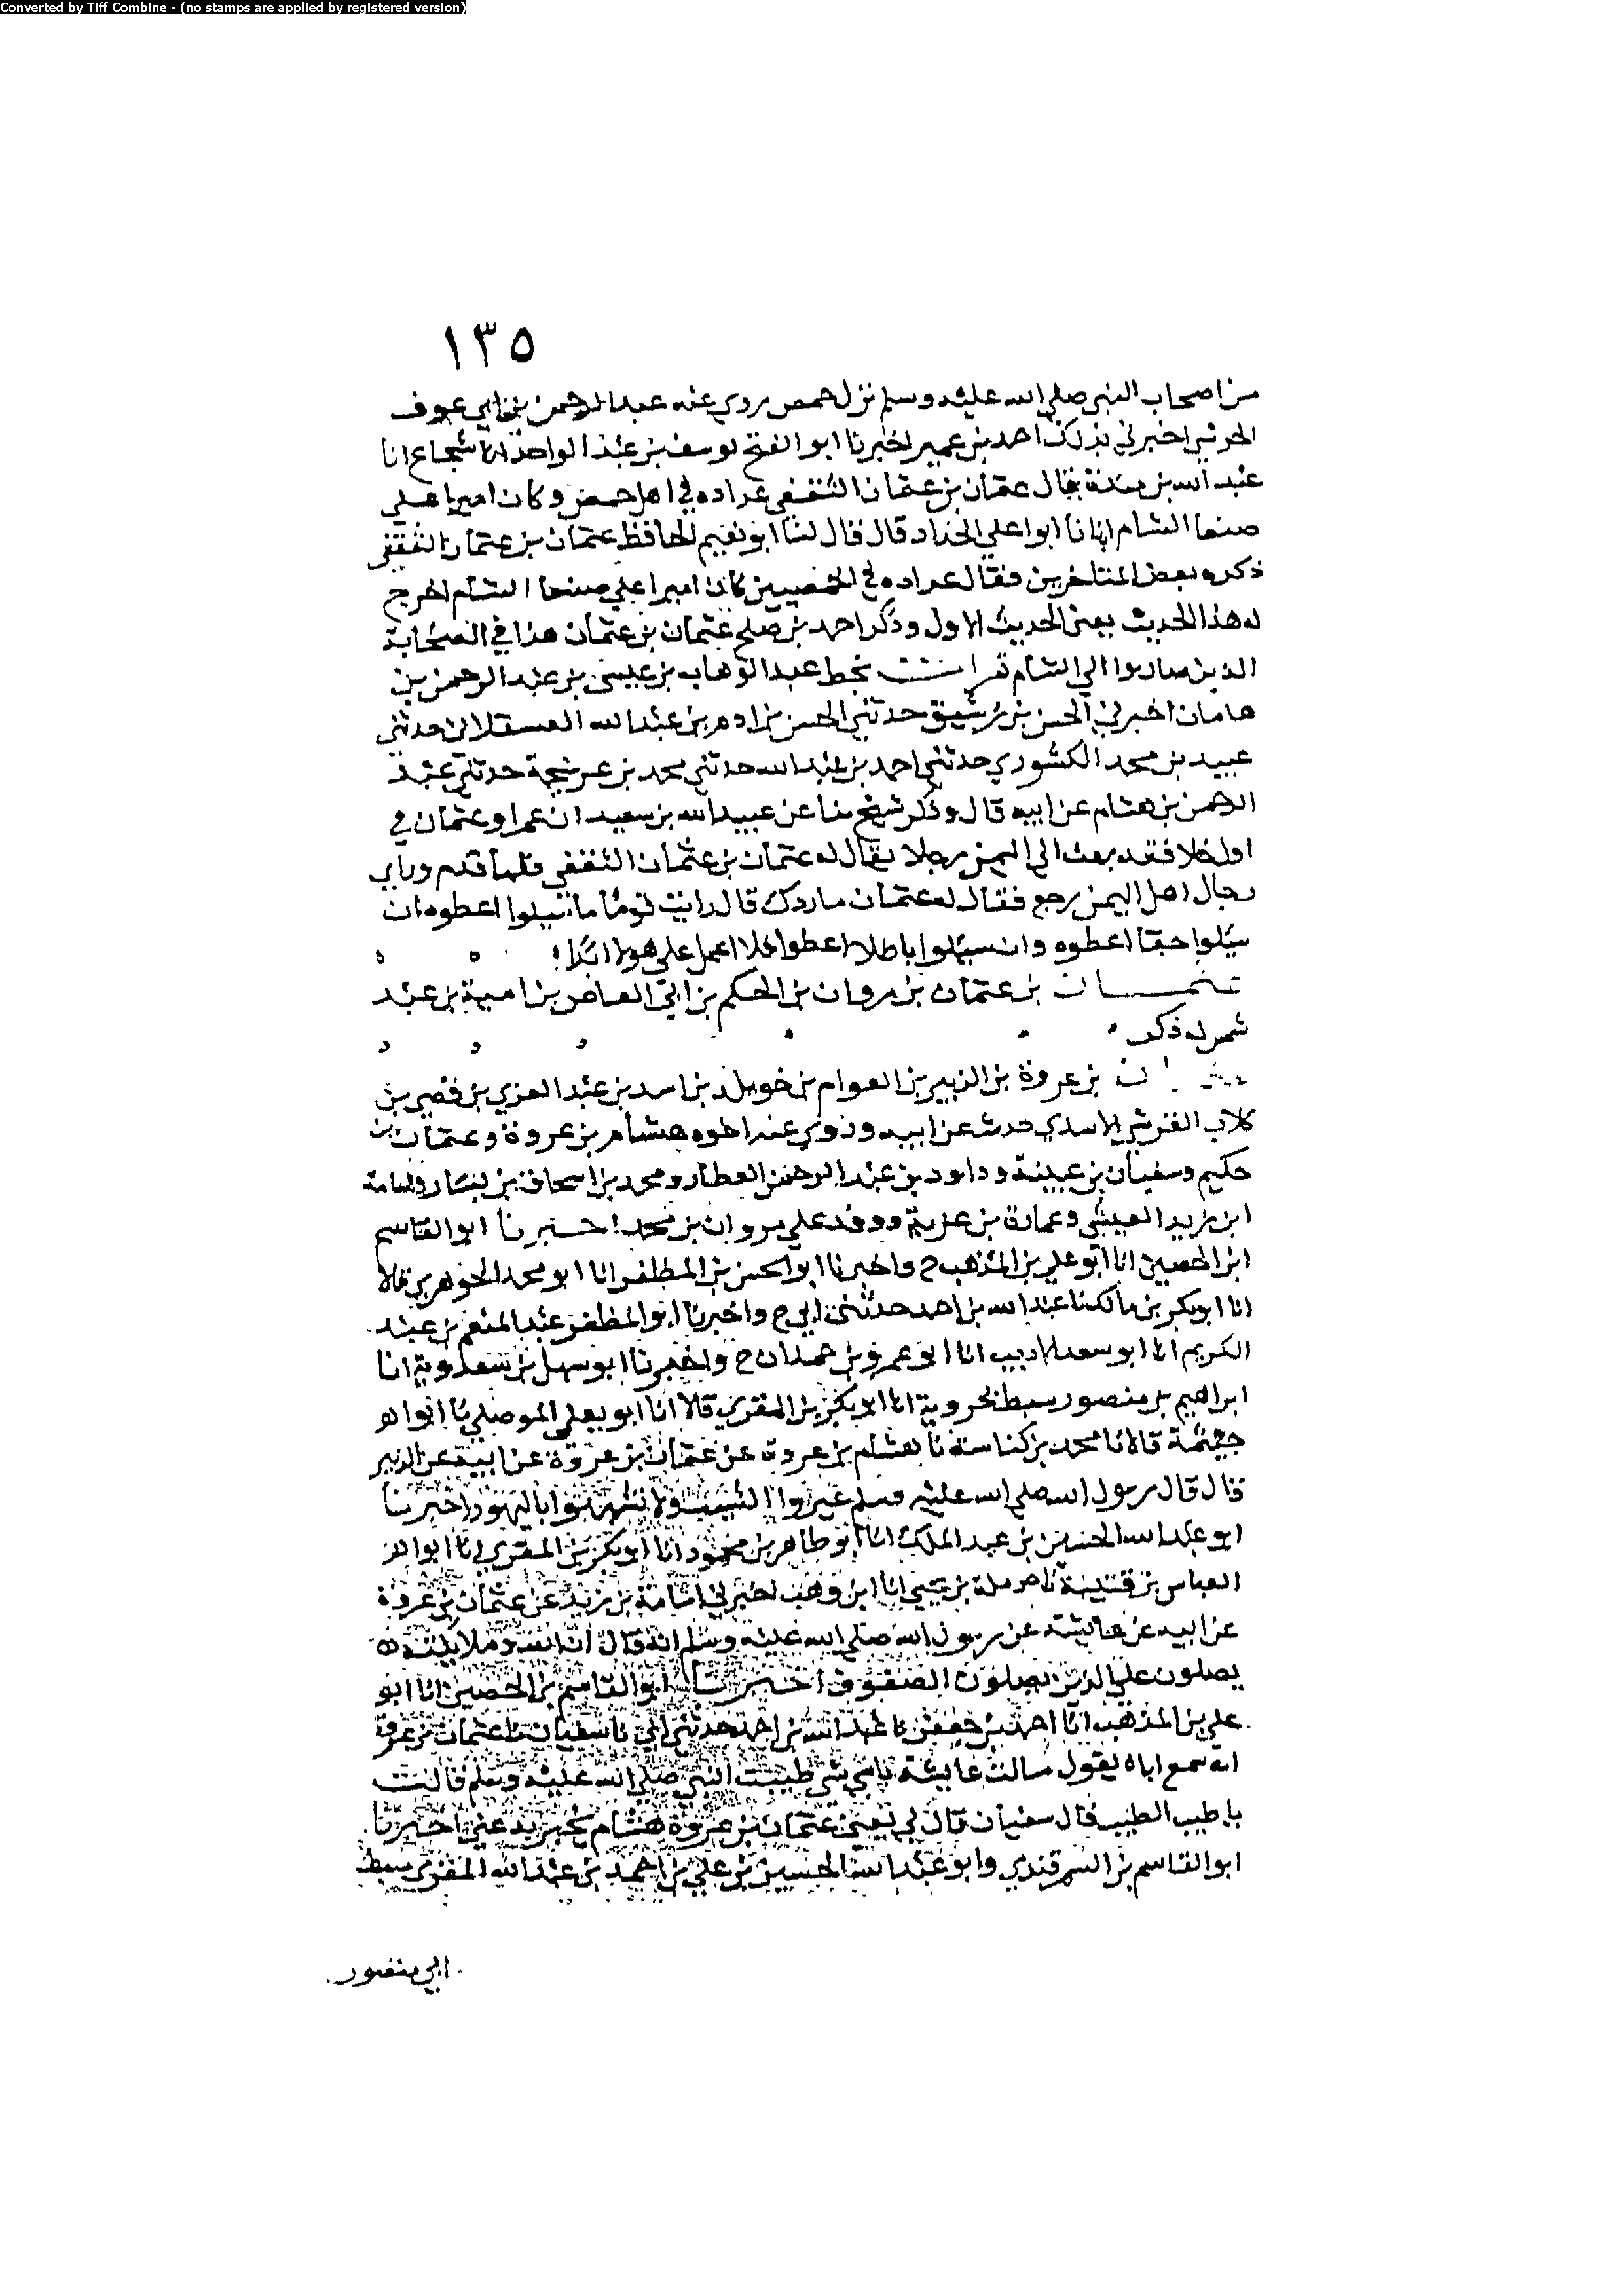 Converted by Tiff Combine - (no stamps are applied by registered version)
١٣٥
من اصحاب النبي صلى الله عليه وسلم نزل حمص روى عنه عبد الرحمن بن ابي عوف
الجرشي اخبرني بذلك احمد بن عمير اخبرنا ابو الفتح يوسف بن عبد الواحد انا شجاع انا
عبد الله بن مندة قال عثمان بن عثمان الثقفي عداده في اهل حمص وكان اميرا على
صنعا الشام انبانا ابو علي الحداد قال قال لنا ابو نعيم الحافظ عثمان بن عثمان الثقفي
ذكره بعض المتاخرين فقال عداده في الحمصيين كان اميرا على صنعا الشام اخرج
له هذا الحديث يعني الحديث الاول وذكر احمد بن صلح عثمان بن عثمان هذا في الصحابة
الذين صاروا الى الشام قرات بخط عبد الوهاب بن عيسى بن عبد الرحمن بن
هامان اخبرني الحسن بن رشيق حدثني الحسن بن ادم بن عبد الله العسقلاني حدثني
عبيد بن محمد الكشوري حدثني احمد بن عبد الله حدثني محمد بن عبد
الرحمن بن هشام عن ابيه قال وذكر شيخ منا عن عبيد الله بن سعيد ان عمر او عثمان في
اول خلافته بعث الى اليمن رجلا يقال له عثمان بن عثمان الثقفي فلما قدم وراى
رجال اهل اليمن رجع فقال له عثمان ما ردك قال رايت قوما ما سيلوا اعطوه ان
سيلوا حقا اعطوه وان سيلوا باطلا اعطوا فلا اعمل على هولا ابدا
عثمان بن عثمان بن مروان بن الحكم بن ابي العاص بن امية بن عبد
شمس له ذكر
بن عروة بن الزبير بن العوام بن خويلد بن اسد بن عبد العزي بن قصي بن
كلاب القرشي الاسدي حدث عن ابيه وروى عنه اخوه هشام بن عروة وعثمان بن
حكيم وسفيان بن عيينة وداود بن عبد الرحمن العطار ومحمد بن اسحاق بن يسار واسامة
ابن زيد الليثي وعمارة بن غزية ووفد على مروان بن محمد اخبرنا ابو القاسم
ابن الحصين انا ابو علي بن المذهب ح واخبرنا ابو الحسن بن المظفر انا ابو محمد الجوهري قالا
انا ابو بكر بن مالك نا عبد الله بن احمد حدثني ابي ح واخبرنا ابو المظفر عبد المنعم بن عبد
الكريم انا ابو سعد الاديب انا ابو عمرو بن حمدان ح واخبرنا ابو سهل بن سعدوية انا
ابراهيم بن منصور سبط بحروية انا ابو بكر بن المقرى قالا انا ابو يعلى الموصلي نا ابو
خيثمة قالا نا محمد بن كناسة نا هشام بن عروة عن عثمان بن عروة عن ابيه عن الزبير
قال قال رسول الله صلى الله عليه وسلم غيروا الشيب ولا تشبهوا باليهود اخبرنا
ابو عبد الله الحسين بن عبد الملك انا ابو طاهر بن محمود انا ابو بكر بن المقرى انا ابو
العباس بن قتيبة نا حرملة بن يحيى انا ابن وهب اخبرني اسامة بن زيد عن عثمان بن عروة
عن ابيه عن عائشة عن رسول الله صلى الله عليه وسلم انه قال ان الله وملايكته
يصلون على الذين يصلون الصفوف اخبرنا ابو القاسم بن الحصين انا ابو
علي بن المذهب انا احمد بن جعفر نا عبد الله بن احمد حدثني ابي نا سفيان نا عثمان بن عروة
انه سمع اباه يقول سالت عايشة باي شي طيبت النبي صلى الله عليه وسلم قالت
باطيب الطيب قال سفيان قال لي يعني عثمان بن عروة هشام يخبر به عني اخبرنا
ابو القاسم بن السمرقندي وابو عبد الله الحسين بن علي بن احمد بن عبد الله المقرى سبط
ابي منصور